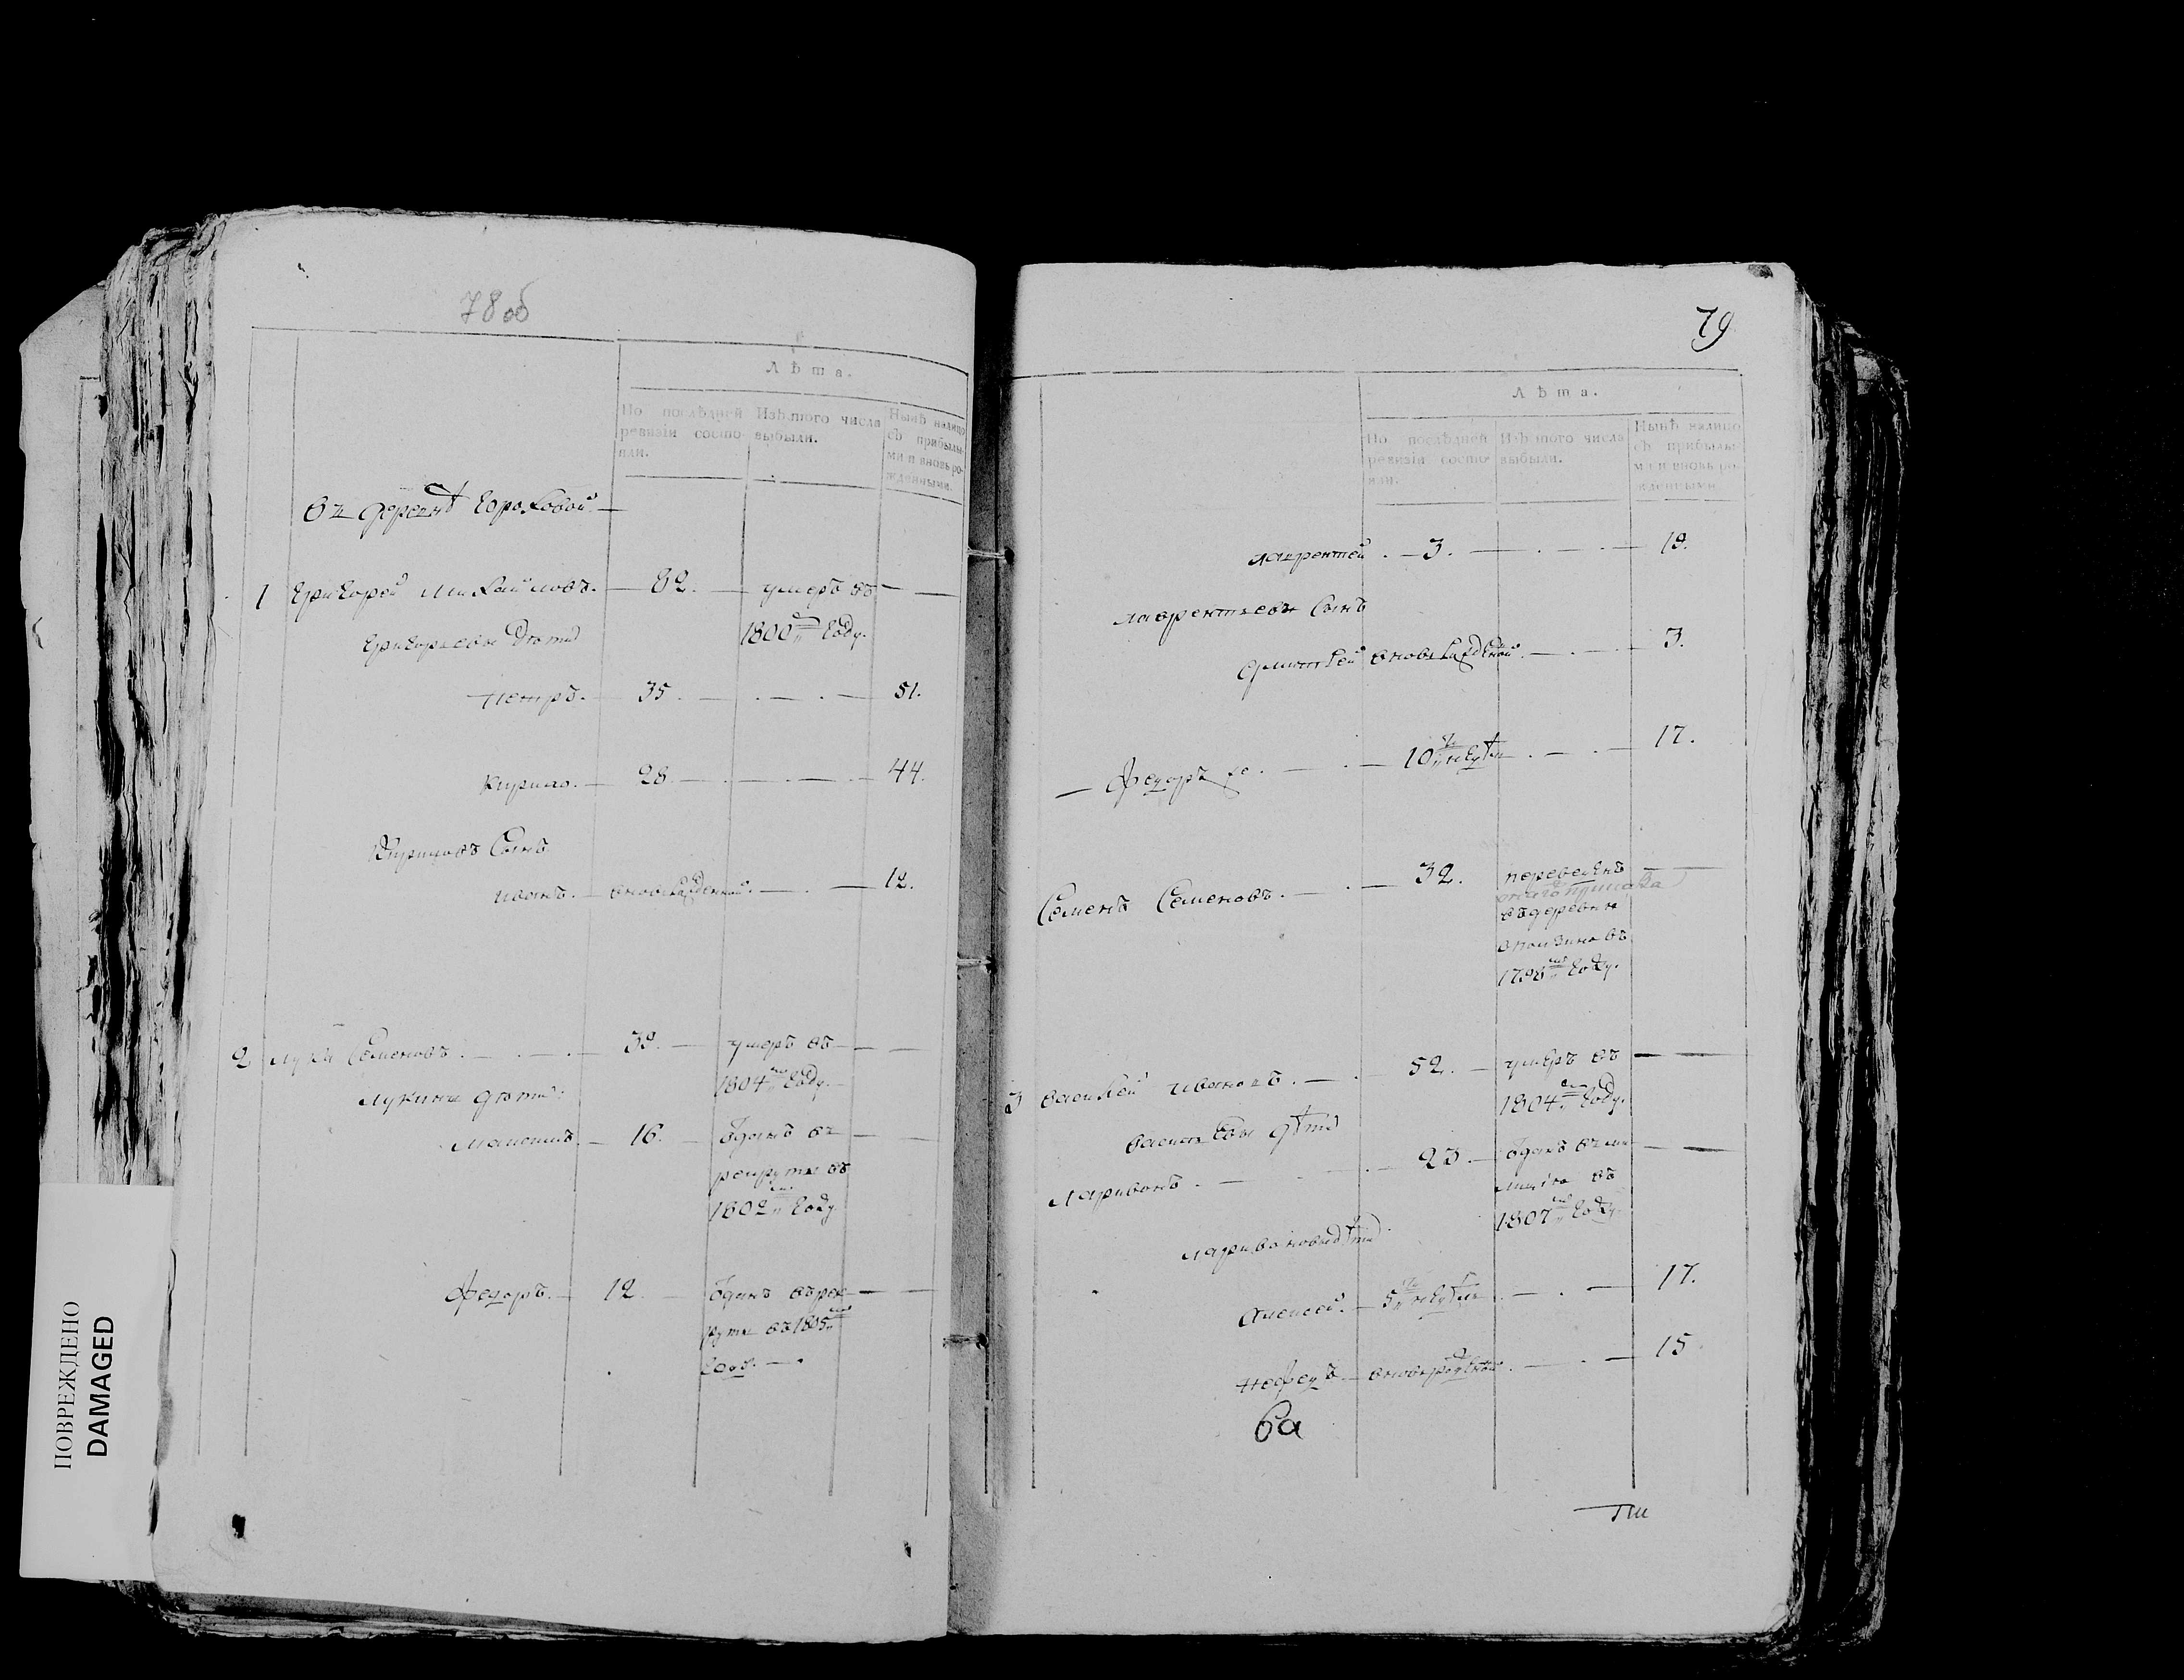 78 об
Лѣта.
По послѣдней ревизіи состояли.
Изъ того числа выбыли.
Нынѣ налицо съ прибылыми и вновь рожденными.
въ деревнѣ Гороховой
1 Григорей Михайловъ. 82. умеръ въ
1800мъ году.
Григорьевы дѣти
Петръ. 35. 51.
Кирило. 28. 44.
Кириловъ Сынъ
Иванъ. вновь рожденной. 12.
2 Лука Семеновъ. 39. умеръ въ
1804мъ году.
Лукины дѣти:
16. отданъ въ
рекруты въ
1802мъ году
Федоръ. 12. отданъ въ рек
руты въ 1805мъ
году.
79
Лѣта.
По послѣдней ревизіи состояли.
Изъ того числа выбыли.
Нынѣ налицо съ прибылыми и вновь рожденными.
Лаврентей. 3. 19.
Лаврентьевъ Сынъ
вновь рожденной. 3.
Федоръ 10ти недѣль 17.
Семенъ Семеновъ. 32. переведенъ
въ деревню
въ
1796мъ году.
3 Василей Ивановъ. 52. умеръ въ
1804мъ году.
Васильевы дѣти
Ларивонъ. 23. отданъ въ ми
лицію въ
1807мъ году.
Ларивоновы дѣти
Алексей. 5ти недѣль 17.
Нефедъ. вновь рожденной. 15.
ба
ти
ПОВРЕЖДЕНО
DAMAGED